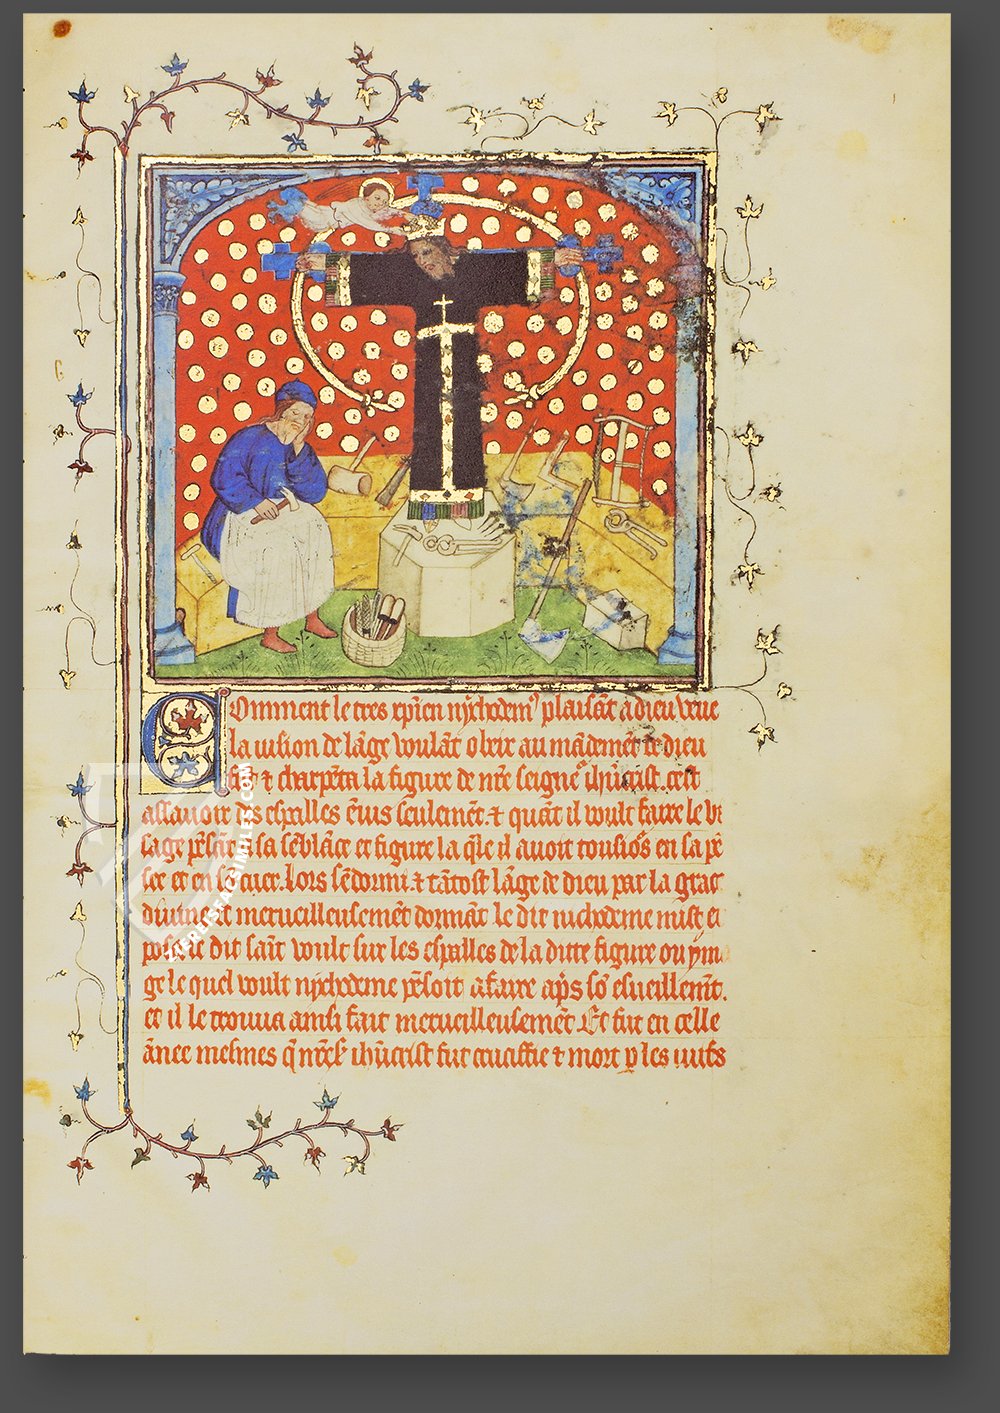 Comment le tres xp̃ien nychodem⁹ plaisãt a dieu veue
la uision de lãge voulãt obeir au mãdemẽt de dieu
fist ⁊ charpẽta la figure de nr̃e seigne᷑ ihũcrist . cest
assauoir les espalles ẽuis seulemẽt . ⁊ quãt il voult faire le vi
sage pẽsãt a sa sẽblãce et figure la q̃lle il auoit tousiõs en sa pẽ
see et en sõ cuer . Lors sẽdormi . ⁊ tãtost lãge de dieu par la grac
diuine et merueilleusemẽt dormãt le dit nichodeme mist et
posa le dit sãit voult sur les espalles de la ditte figure ou yma
ge le quel voult nychodeme pẽsoit a faire ap̃s sõ esueillemẽt .
et il le trouua ainsi fait merueilleusemẽt Et fut en celle
ãnee mesmes q̃ nr̃e s᷑ ihũcrist fut crucifie ⁊ mort p̱ les iuifs
FACSIMILES.COM